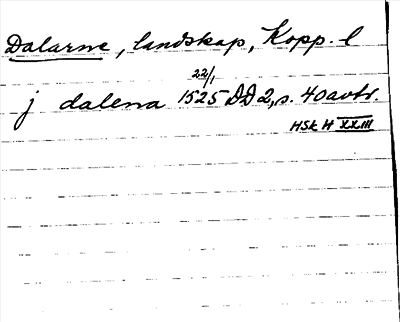 Dalarne, landskap, Kopp. l
j dalena 1525 22/1 DD 2, s. 40 avtr.
HSk H XXIII